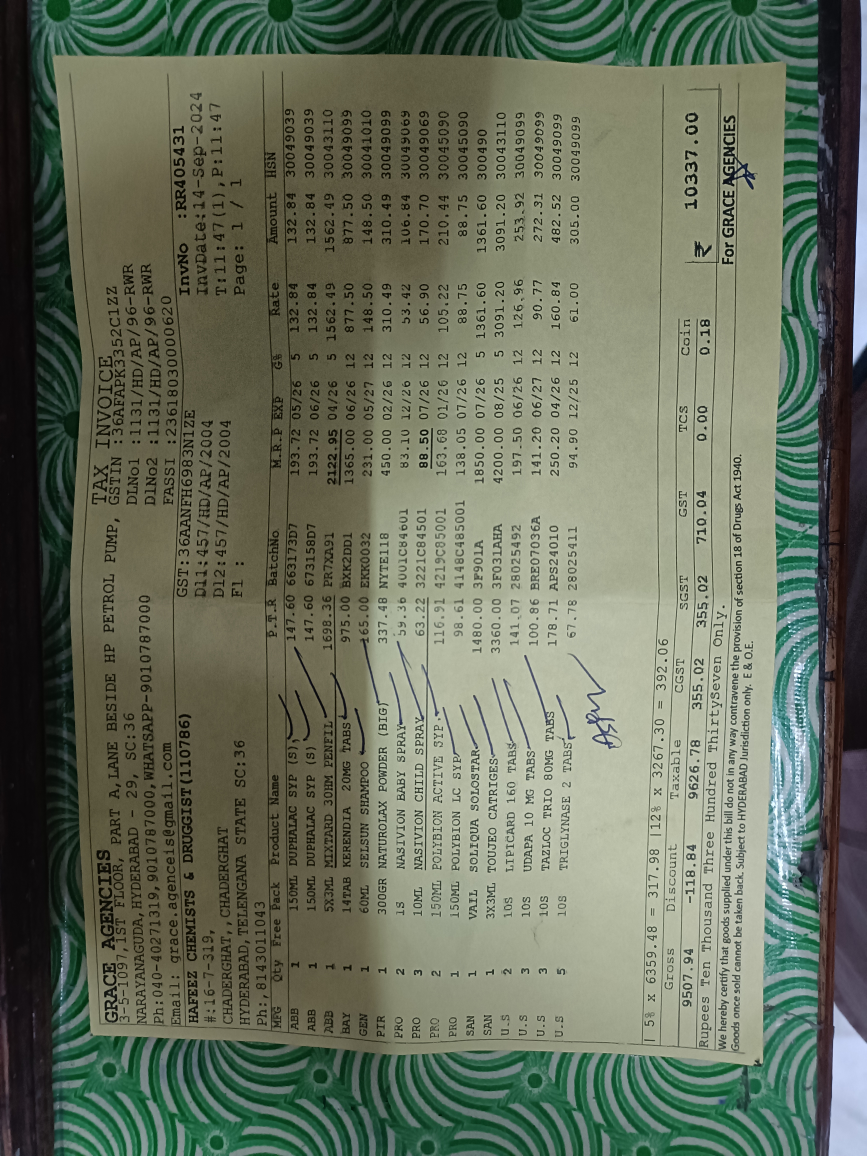 GRACE AGENCIES
3-5-1097,1ST FLOOR, PART A,LANE BESIDE HP PETROL PUMP,
NARAYANAGUDA,HYDERABAD - 29, SC:36
Ph:040-40271319,9010787000,WHATSAPP-9010787000
Email: grace.agenceis@gmail.com
TAX INVOICE
GSTIN :36AFAPK3352C1ZZ
DLNo1 :1131/HD/AP/96-RWR
DlNo2 :1131/HD/AP/96-RWR
FASSI :23618030000620
HAFEEZ CHEMISTS & DRUGGIST(110786)
#:16-7-319,
CHADERGHAT,,CHADERGHAT
HYDERABAD,TELENGANA STATE SC:36
Ph:,8143011043
GST:36AANFH6983N1ZE
Dl1:457/HD/AP/2004
Dl2:457/HD/AP/2004
Fl :
InvNo :RR405431
InvDate:14-Sep-2024
T:11:47(1),P:11:47
Page: 1 / 1
MFG Qty Free Pack Product Name P.T.R BatchNo M.R.P EXP G% Rate Amount HSN
ABB 1 150ML DUPHALAC SYP (S) 147.60 663173D7 193.72 05/26 5 132.84 132.84 30049039
ABB 1 150ML DUPHALAC SYP (S) 147.60 673158D7 193.72 06/26 5 132.84 132.84 30049039
ABB 1 5X3ML MIXTARD 30HM PENFIL 1698.36 PR7XA91 2122.95 04/26 5 1562.49 1562.49 30043110
BAY 1 14TAB KERENDIA 20MG TABS 975.00 BXK2DD1 1365.00 06/26 12 877.50 877.50 30049099
GEN 1 60ML SELSUN SHAMPOO 165.00 EKK0032 231.00 05/27 12 148.50 148.50 30041010
PIR 1 300GR NATUROLAX POWDER (BIG) 337.48 NYTE118 450.00 02/26 12 310.49 310.49 30049099
PRO 2 1S NASIVION BABY SPRAY 59.36 4001C84601 83.10 12/26 12 53.42 106.84 30049069
PRO 3 10ML NASIVION CHILD SPRAY 63.22 3221C84501 88.50 07/26 12 56.90 170.70 30049069
PRO 2 150ML POLYBION ACTIVE SYP. 116.91 4219C85001 163.68 01/26 12 105.22 210.44 30045090
PRO 1 150ML POLYBION LC SYP 98.61 4148C485001 138.05 07/26 12 88.75 88.75 30045090
SAN 1 VAIL SOLIQUA SOLOSTAR 1480.00 3F901A 1850.00 07/26 5 1361.60 1361.60 300490
SAN 1 3X3ML TOUJEO CATRIGES 3360.00 3F031AHA 4200.00 08/25 5 3091.20 3091.20 30043110
U.S 2 10S LIPICARD 160 TABS 141.07 28025492 197.50 06/26 12 126.96 253.92 30049099
U.S 3 10S UDAPA 10 MG TABS 100.86 BRE07036A 141.20 06/27 12 90.77 272.31 30049099
U.S 3 10S TAZLOC TRIO 80MG TABS 178.71 APS24010 250.20 04/26 12 160.84 482.52 30049099
U.S 5 10S TRIGLYNASE 2 TABS 67.78 28025411 94.90 12/25 12 61.00 305.00 30049099
| 5% x 6359.48 = 317.98 |12% x 3267.30 = 392.06
Gross Discount Taxable CGST SGST GST TCS Coin
9507.94 -118.84 9626.78 355.02 355.02 710.04 0.00 0.18
₹ 10337.00
Rupees Ten Thousand Three Hundred ThirtySeven Only.
We hereby certify that goods supplied under this bill do not in any way contravene the provision of section 18 of Drugs Act 1940.
Goods once sold cannot be taken back. Subject to HYDERABAD Jurisdiction only. E & O.E.
For GRACE AGENCIES